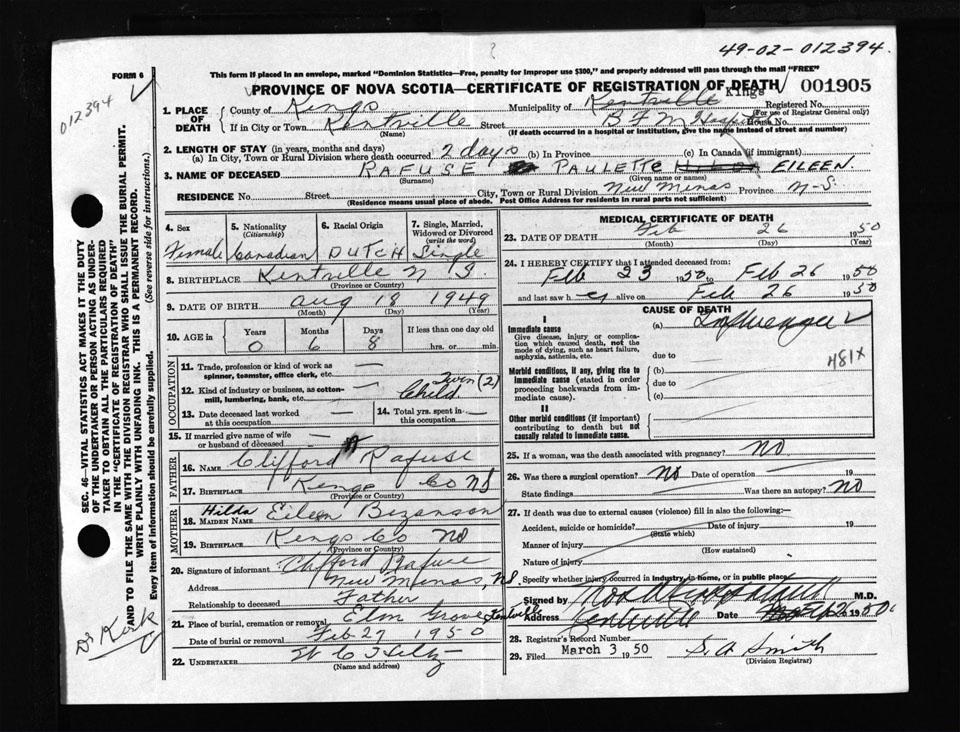 49-02-012394.
FORM 6
This form if placed in an envelope, marked "Dominion Statistics—Free, penalty for improper use $300," and properly addressed will pass through the mail "FREE"
PROVINCE OF NOVA SCOTIA—CERTIFICATE OF REGISTRATION OF DEATH 001905
012394
1. PLACE OF DEATH
County of Kings Municipality of Kentville Kings Registered No.
(For use of Registrar General only)
If in City or Town Kentville Street B F M Hospital House No.
(Name) (If death occurred in a hospital or institution, give the name instead of street and number)
2. LENGTH OF STAY (in years, months and days)
(a) In City, Town or Rural Division where death occurred 2 days (b) In Province (c) In Canada (if immigrant)
3. NAME OF DECEASED RAFUSE PAULETTE EILEEN.
(Surname) (Given name or names)
RESIDENCE No. Street City, Town or Rural Division New Minas Province N-S.
(Residence means usual place of abode. Post Office Address for residents in rural parts not sufficient)
4. Sex Female
5. Nationality (Citizenship) Canadian
6. Racial Origin DUTCH
7. Single, Married, Widowed or Divorced (write the word) Single
8. BIRTHPLACE Kentville N S.
(Province or Country)
9. DATE OF BIRTH Aug 18 1949
(Month) (Day) (Year)
10. AGE in Years 0 Months 6 Days 8 If less than one day old hrs. or min.
OCCUPATION
11. Trade, profession or kind of work as spinner, teamster, office clerk, etc. —
12. Kind of industry or business, as cotton-mill, lumbering, bank, etc. Child Twin (2)
13. Date deceased last worked at this occupation —
14. Total yrs. spent in this occupation —
15. If married give name of wife or husband of deceased —
FATHER
16. NAME Clifford Rafuse
17. BIRTHPLACE Kings Co NS
(Province or Country)
MOTHER
18. MAIDEN NAME Hilda Eileen Bezanson
19. BIRTHPLACE Kings Co NS
(Province or Country)
20. Signature of informant Clifford Rafuse
Address New Minas, NS.
Relationship to deceased Father
21. Place of burial, cremation or removal Elm Grove Kentville
Date of burial or removal Feb 27 1950
22. UNDERTAKER W C Hiltz
(Name and address)
MEDICAL CERTIFICATE OF DEATH
23. DATE OF DEATH Feb 26 1950
(Month) (Day) (Year)
24. I HEREBY CERTIFY that I attended deceased from
Feb 23 1950 to Feb 26 1950
and last saw her alive on Feb 26 1950
CAUSE OF DEATH
I
Immediate cause
Give disease, injury or complication which caused death, not the mode of dying, such as heart failure, asphyxia, asthenia, etc.
(a) Influenza
due to —
481X
Morbid conditions, if any, giving rise to immediate cause (stated in order proceeding backwards from immediate cause).
(b)
due to
(c)
II
Other morbid conditions (if important) contributing to death but not causally related to immediate cause.
25. If a woman, was the death associated with pregnancy? No
26. Was there a surgical operation? No Date of operation 19
State findings Was there an autopsy? No
27. If death was due to external causes (violence) fill in also the following:—
Accident, suicide or homicide? Date of injury 19
(State which)
Manner of injury
(How sustained)
Nature of injury
Specify whether injury occurred in industry, in home, or in public place
Signed by M.D.
Address Kentville Date Feb 26 1950
28. Registrar's Record Number
29. Filed March 3 1950 S. A Smith
(Division Registrar)
SEC. 46—VITAL STATISTICS ACT MAKES IT THE DUTY
OF THE UNDERTAKER OR PERSON ACTING AS UNDERTAKER
TO OBTAIN ALL THE PARTICULARS REQUIRED
IN THE "CERTIFICATE OF REGISTRATION OF DEATH"
AND TO FILE THE SAME WITH THE DIVISION REGISTRAR WHO SHALL ISSUE THE BURIAL PERMIT.
WRITE PLAINLY WITH UNFADING INK. THIS IS A PERMANENT RECORD.
Every item of information should be carefully supplied. (See reverse side for instructions.)
Dr Kirk